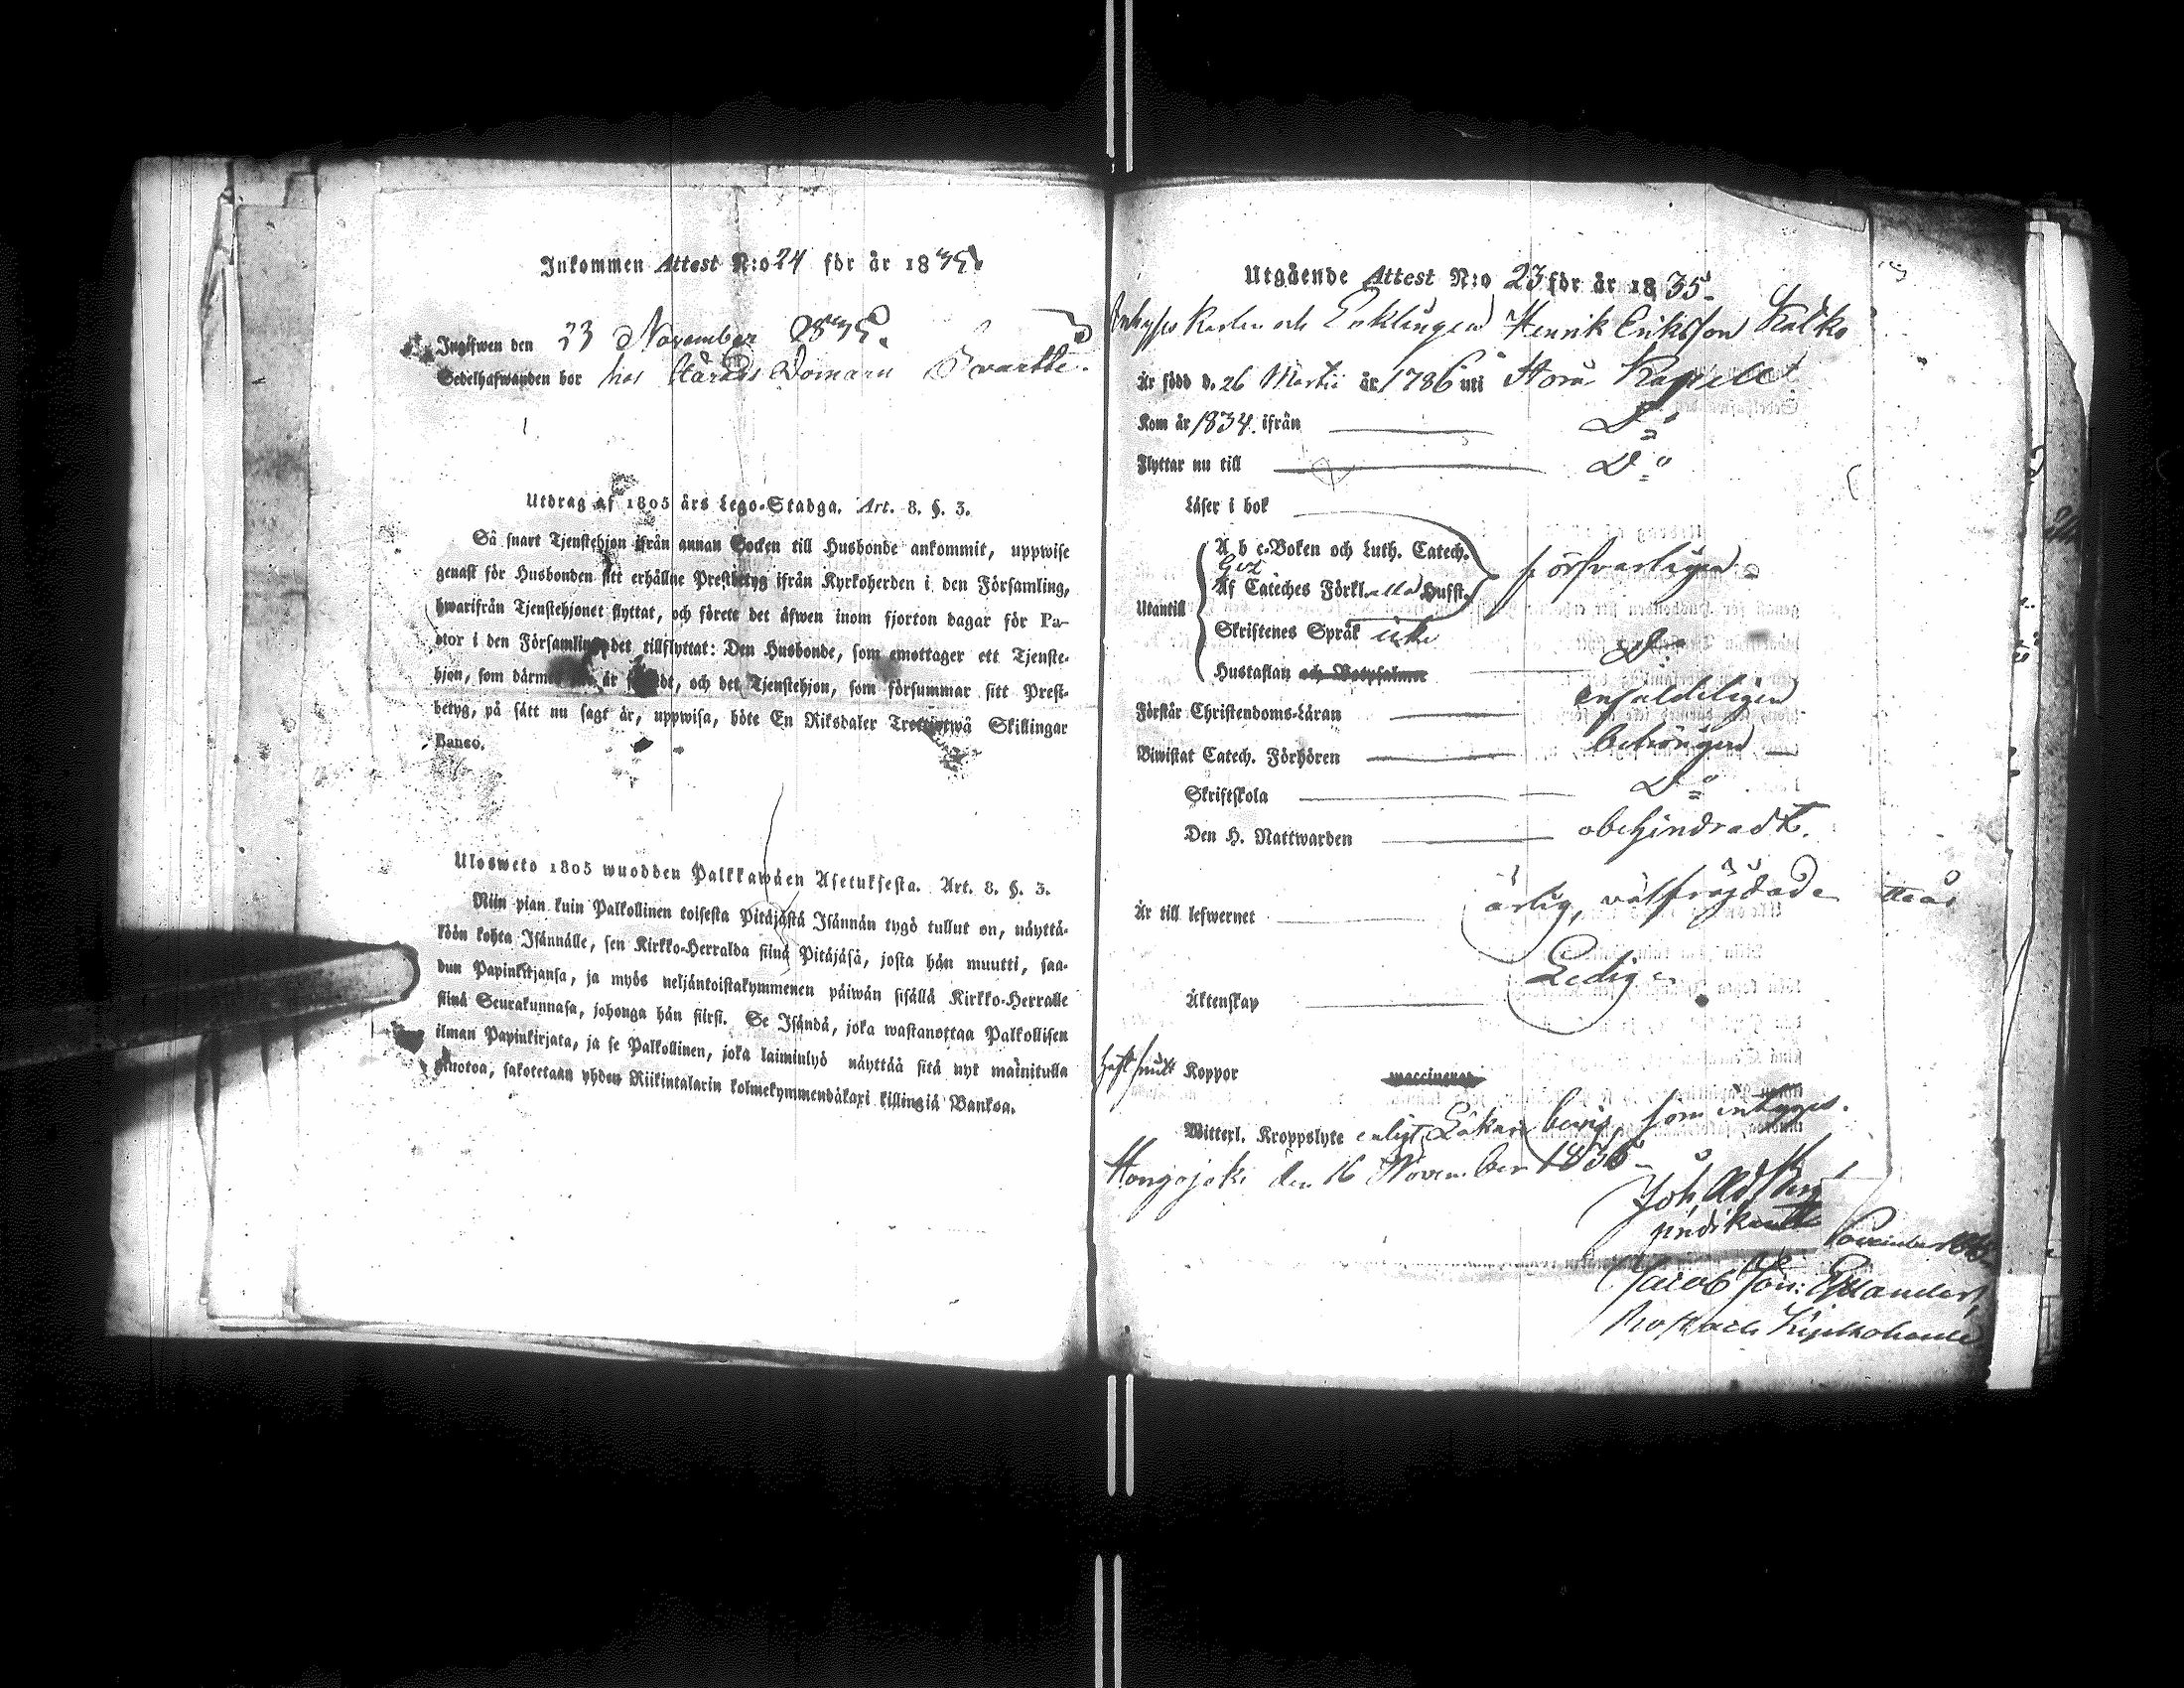 Inkommen Attest N:o 24 för år 1835.
Ingifwen den 23 November 1835.
Sedelhafwanden bor hos Härads Domarn
Utdrag af 1805 års Lego-Stadga. Art. 8. §. 3.
Så snart Tjenstehjon ifrån annan Socken till Husbonde ankommit, uppwise
genast för Husbonden sitt erhållne Prestbetyg ifrån Kyrkoherden i den Församling,
hwarifrån Tjenstehjonet flyttat, och förete det äfwen inom fjorton dagar för Pa-
stor i den Församling det tillflyttat: Den Husbonde, som emottager ett Tjenste-
hjon, som därmed är, och det Tjenstehjon, som försummar sitt Prest-
betyg, på sätt nu sagt är, uppwisa, böte En Riksdaler Trettiotwå Skillingar
Banco.
Ulosweto 1805 wuodden Palkkawäen Asetuksesta. Art. 8. §. 3.
Niin pian kuin Palkollinen toisesta Pitäjästä Isännän tygö tullut on, näyttä-
köön kohta Isännälle, sen Kirkko-Herralda siinä Pitäjäsä, josta hän muutti, saa-
dun Papinkirjansa, ja myös neljäntoistakymmenen päiwän sisällä Kirkko-Herralle
siinä Seurakunnasa, johonga hän siirsi. Se Isändä, joka wastanottaa Palkollisen
ilman Papinkirjata, ja se Palkollinen, joka laiminlyö näyttää sitä nyt mainitulla
muotoa, sakotetaan yhden Riikintalarin kolmekymmendäkaxi killingiä Bankoa.
Utgående Attest N:o 23 för år 1835.
Karlen och Enklingen Henrik Eriksson Kalko
Är född d. 26 Martii år 1786 uti Storå Kapell
Kom år 1834. ifrån D:o
Flyttar nu till D:o
Läser i bok
A b c-Boken och Luth. Catech. försvarligen
Af Cateches Förkl. alla Hufst.
Utantill
Skriftenes Språk icke
Hustaflan och Botpsalmer D:o
Förstår Christendoms-Läran enfaldeligen
Biwistat Catech. Förhören behörigen
Skriftskola D:o
Den H. Nattwarden obehindradt.
Är till lefwernet ärlig, välfräjdade
Äktenskap Ledig
haft smitt Koppor waccinerad
Witterl. Kroppslyte enligt Läkare bevis, som inhyses.
Hongojoki den 16 November 1835
November
Jacob Joh: